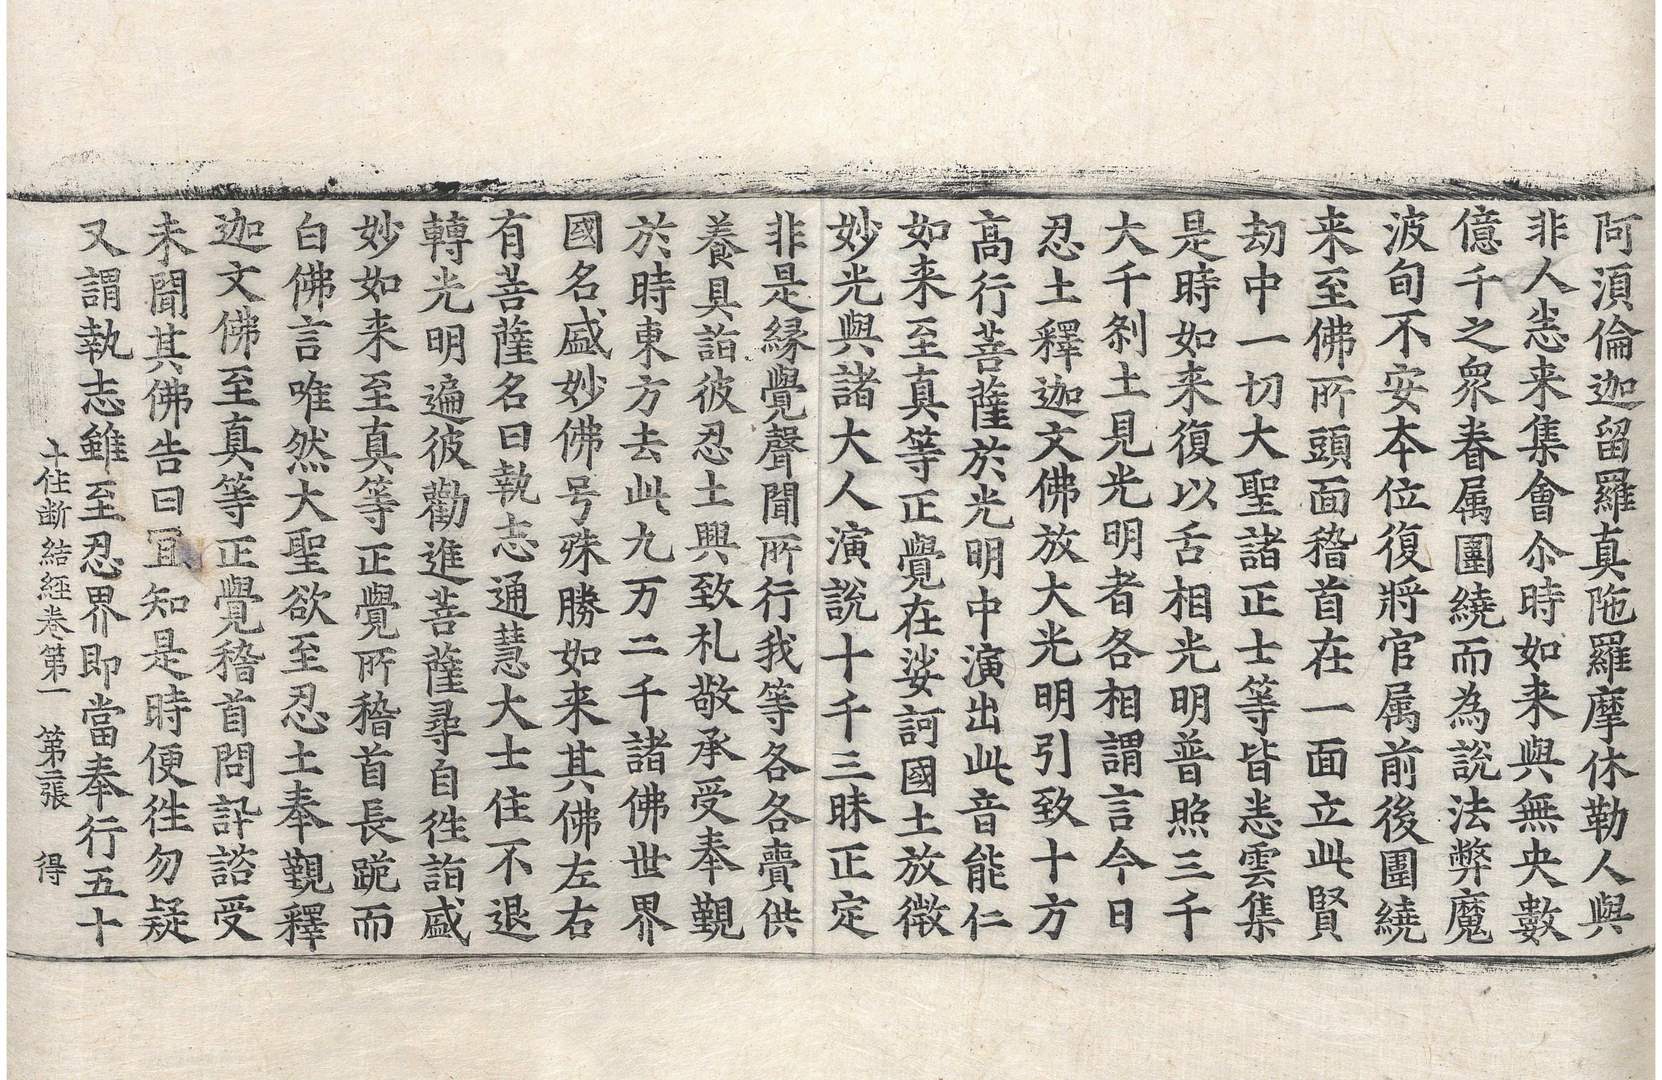 阿湏倫迦留羅真陁羅摩休勒人與
非人悉来集會尒時如来與無央數
億千之衆眷属圍繞而為說法弊魔
波旬不安本位復將官属前後圍繞
来至佛所頭面稽首在一面立此賢
劫中一切大聖諸正士等皆悉雲集
是時如来復以舌相光明普照三千
大千剎土見光明者各相謂言今日
忍土釋迦文佛放大光明引致十方
高行菩薩於光明中演出此音能仁
如来至真等正覺在娑訶國土放徴
妙光與諸大人演說十千三昧正定
非是縁覺聲聞所行我等各各賷供
養具詣彼忍土興致札敬承受奉覲
於時東方去此九万二千諸佛世界
國名盛妙佛号殊勝如来其佛左右
有菩薩名曰執志通慧大士住不退
轉光明遍彼勸進菩薩尋自徃詣盛
妙如来至真等正覺所稽首長跪而
白佛言唯然大聖欲至忍土奉覲釋
迦文佛至真等正覺稽首問訊諮受
未聞其佛告曰冝知是時便徃勿疑
又謂執志雖至忍界即當奉行五十
十住斷結經卷第一　第二張　得